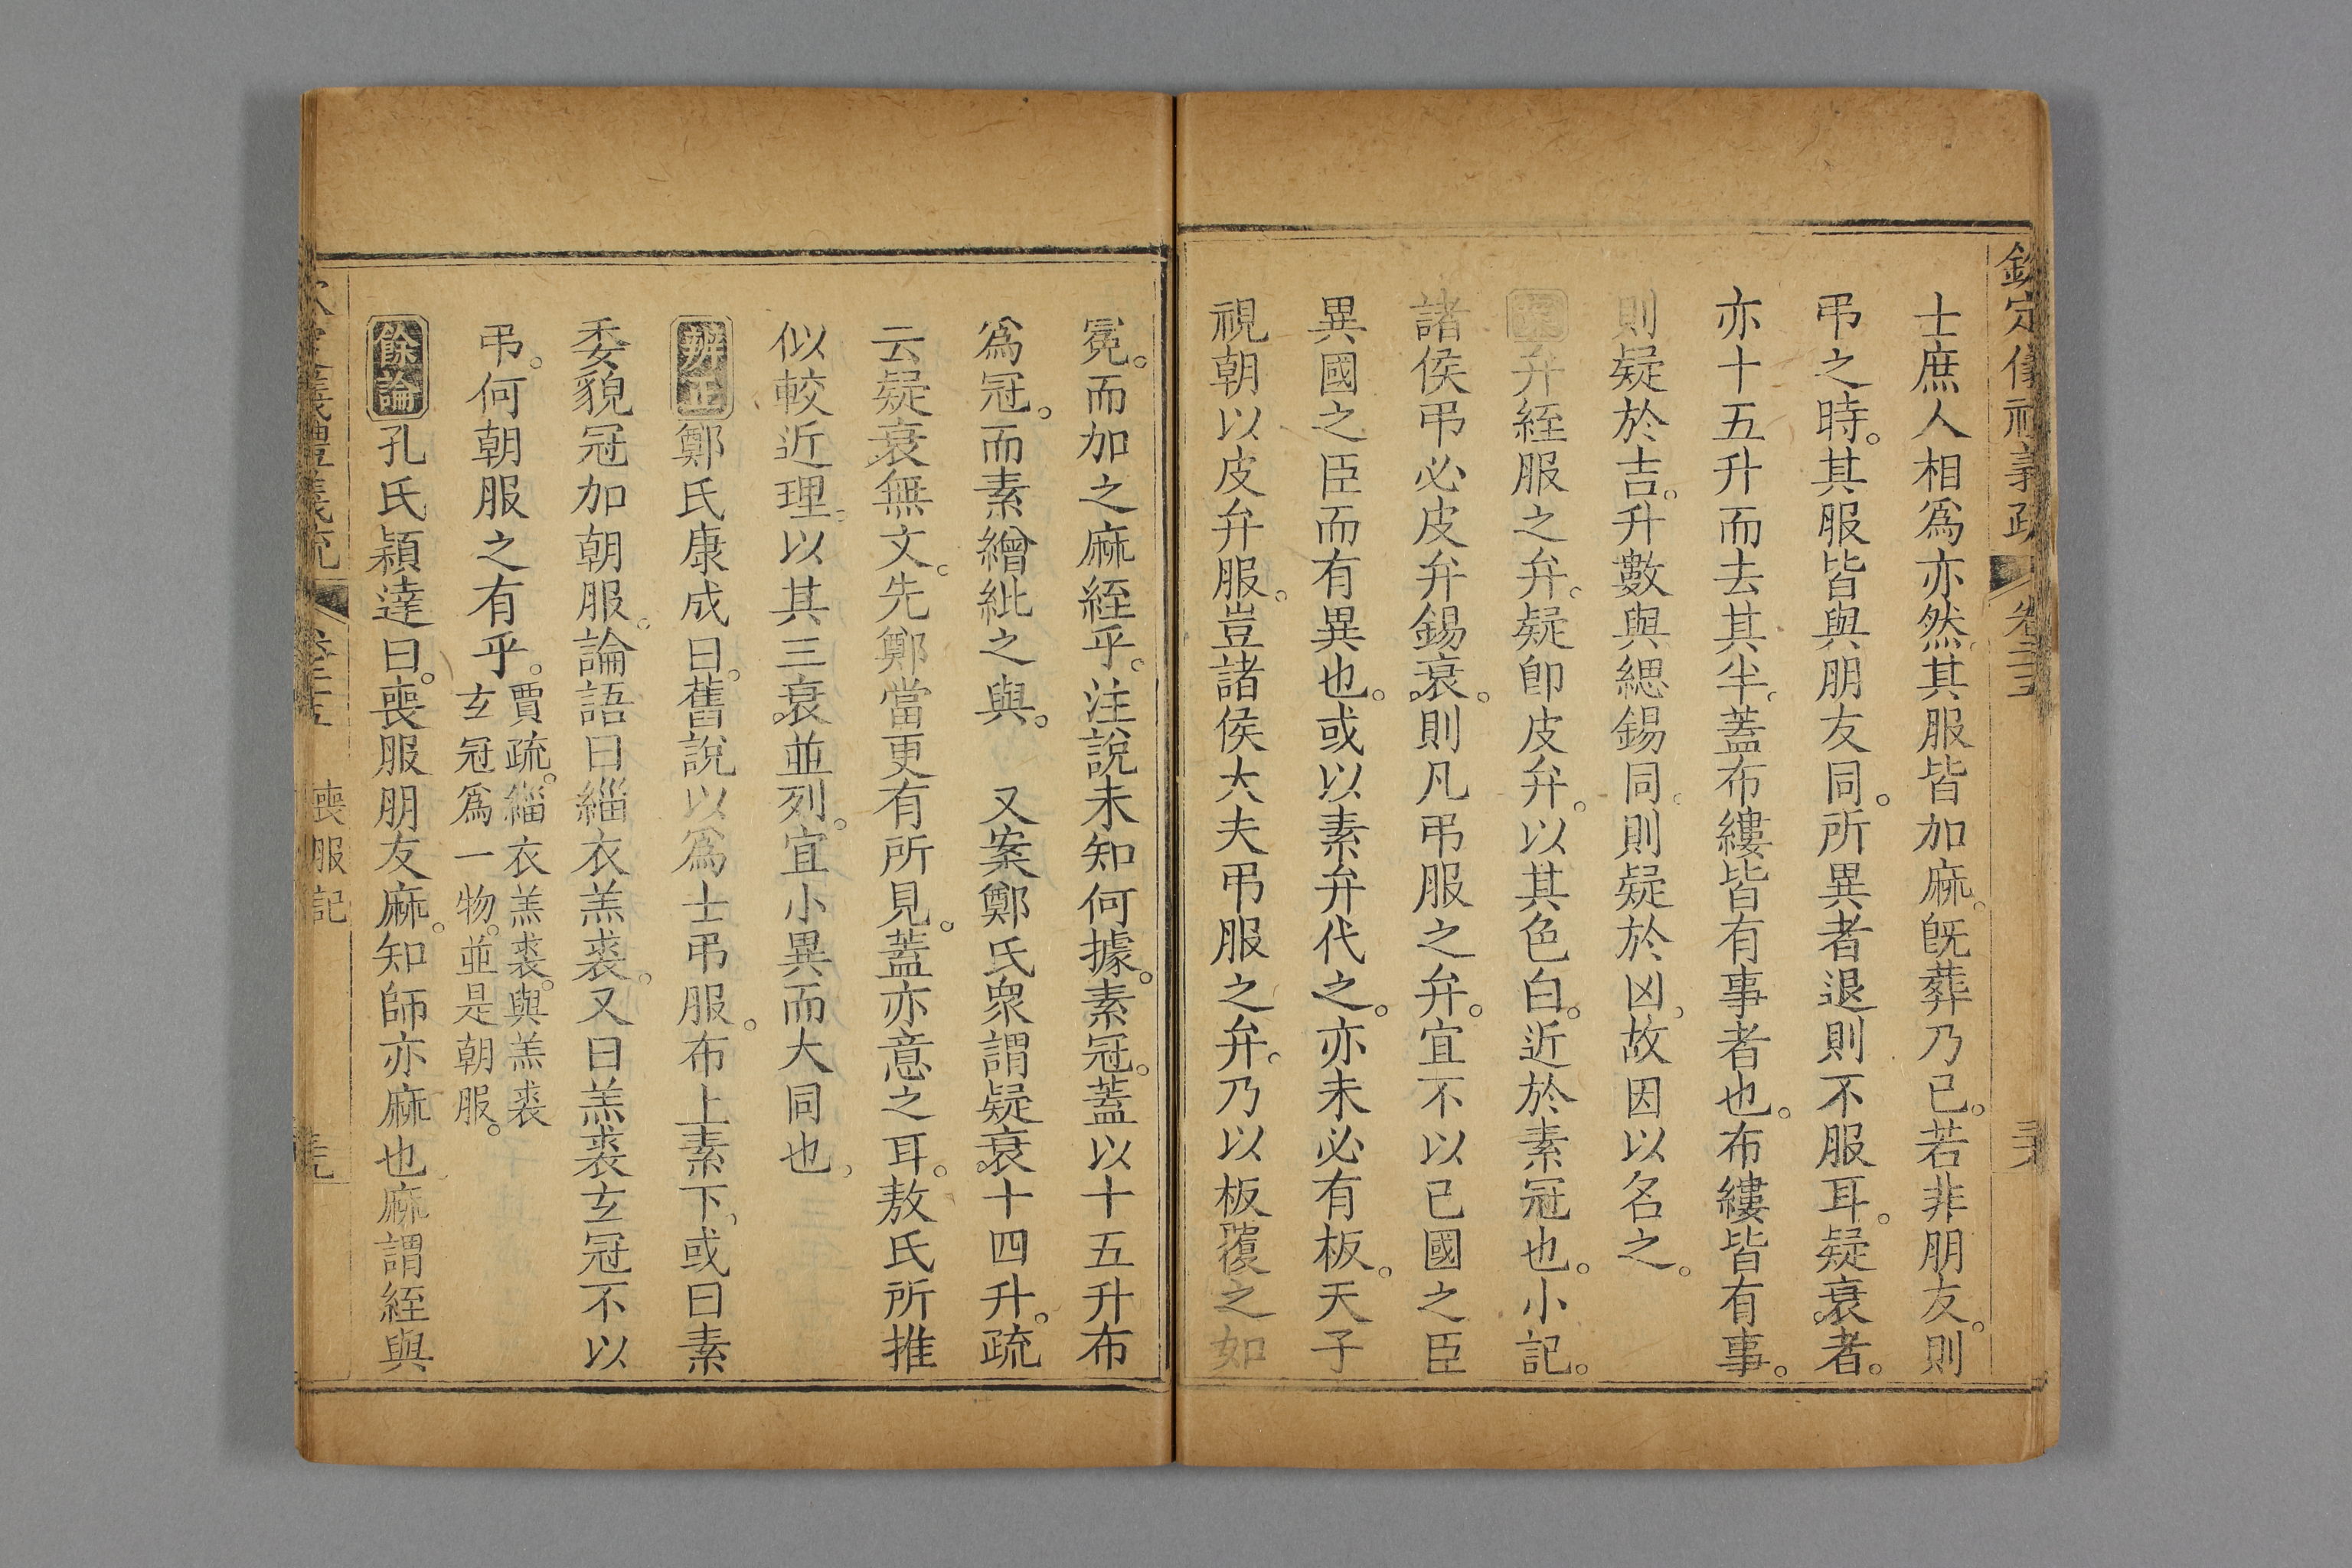 欽定儀禮義疏 卷二十五
士庶人相爲亦然其服皆加麻。旣葬乃已。若非朋友。則
弔之時。其服皆與朋友同。所異者退則不服耳。疑衰者。
亦十五升而去其半。蓋布縷皆有事者也。布縷皆有事。
則疑於吉。升數與緦錫同。則疑於凶。故因以名之。
弁絰服之弁。疑卽皮弁。以其色白。近於素冠也。小記。
諸侯弔必皮弁錫衰。則凡弔服之弁。宜不以已國之臣
異國之臣而有異也。或以素弁代之。亦未必有板。天子
視朝以皮弁服。豈諸侯大夫弔服之弁。乃以板覆之如
冕。而加之麻絰乎。注說未知何據。素冠。蓋以十五升布
爲冠。而素繒紕之與。 又案鄭氏衆謂疑衰十四升。疏
云疑衰無文。先鄭當更有所見。蓋亦意之耳。敖氏所推
似較近理。以其三衰並列。宜小異而大同也。
辨正鄭氏康成曰。舊說以爲士弔服。布上素下。或曰素
委貌冠加朝服。論語曰緇衣羔裘。又曰羔裘玄冠不以
弔。何朝服之有乎。
賈疏。緇衣羔裘。與羔裘
玄冠爲一物。並是朝服。
餘論孔氏穎達曰。喪服朋友麻。知師亦麻也。麻謂絰與
喪服記